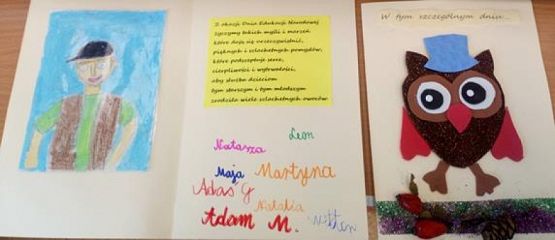 Z okazji Dnia Edukacji Narodowej
życzymy takich myśli i marzeń
które dają się urzeczywistnić,
pięknych i szlachetnych pomysłów,
które podszeptuje serce,
cierpliwości i wytrwałości,
aby służba dzieciom
tym starszym i tym młodszym
zrodziła wiele szlachetnych owoców.
Leon
Natasza
Maja Martyna
Adas G
Natalia
Adam M.
W tym szczególnym dniu...